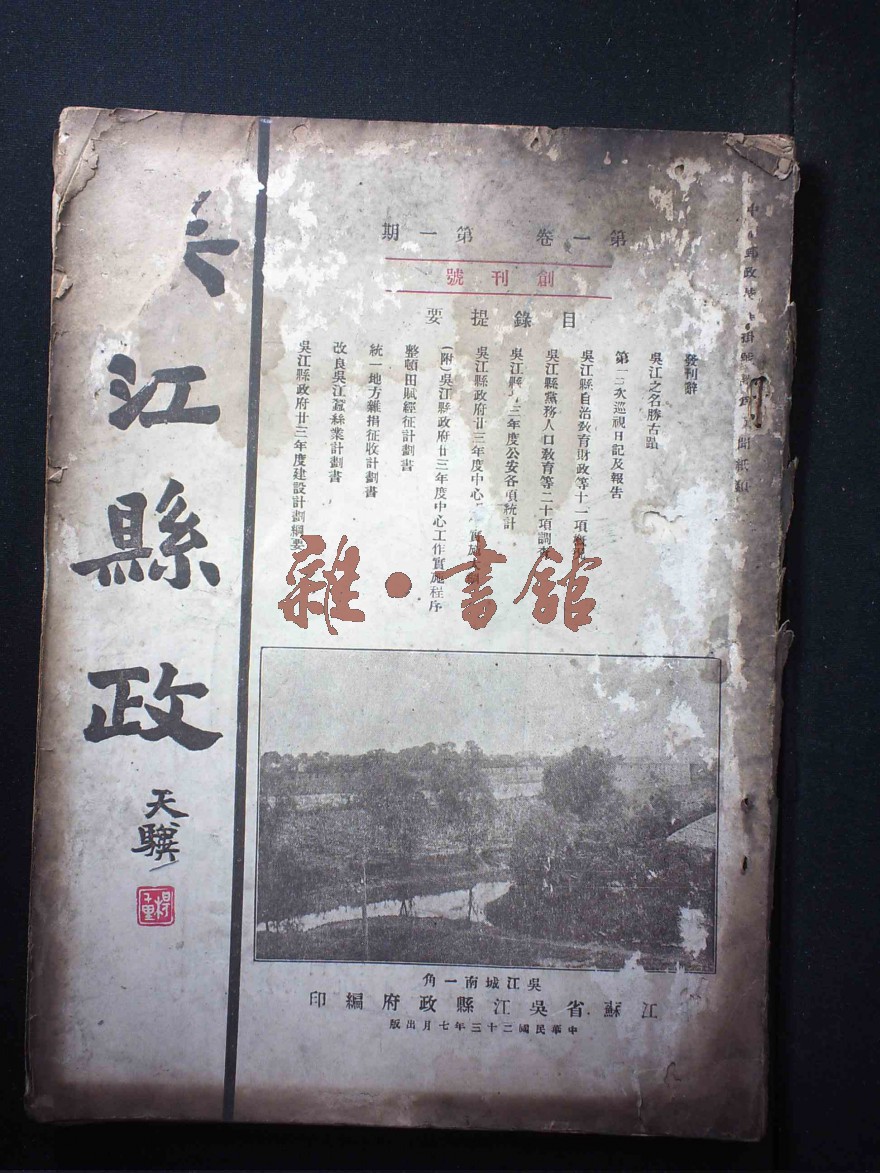 江縣政
天驥
第一卷 第一期
創刊號
目錄提要
發刊辭
吳江之名勝古蹟
第一二次巡視日記及報告
吳江縣自治教育財政等十一項概況
吳江縣黨務人口教育等二十項調查
吳江縣 三年度公安各項統計
吳江縣政府廿三年度中心 實施大綱
(附)吳江縣政府廿三年度中心工作實施程序
整頓田賦經征計劃書
統一地方雜捐征收計劃書
改良吳江蠶絲業計劃書
吳江縣政府廿三年度建設計劃綱要
雜·書館
吳江城南一角
江蘇省吳江縣政府編印
中華民國二十三年七月出版